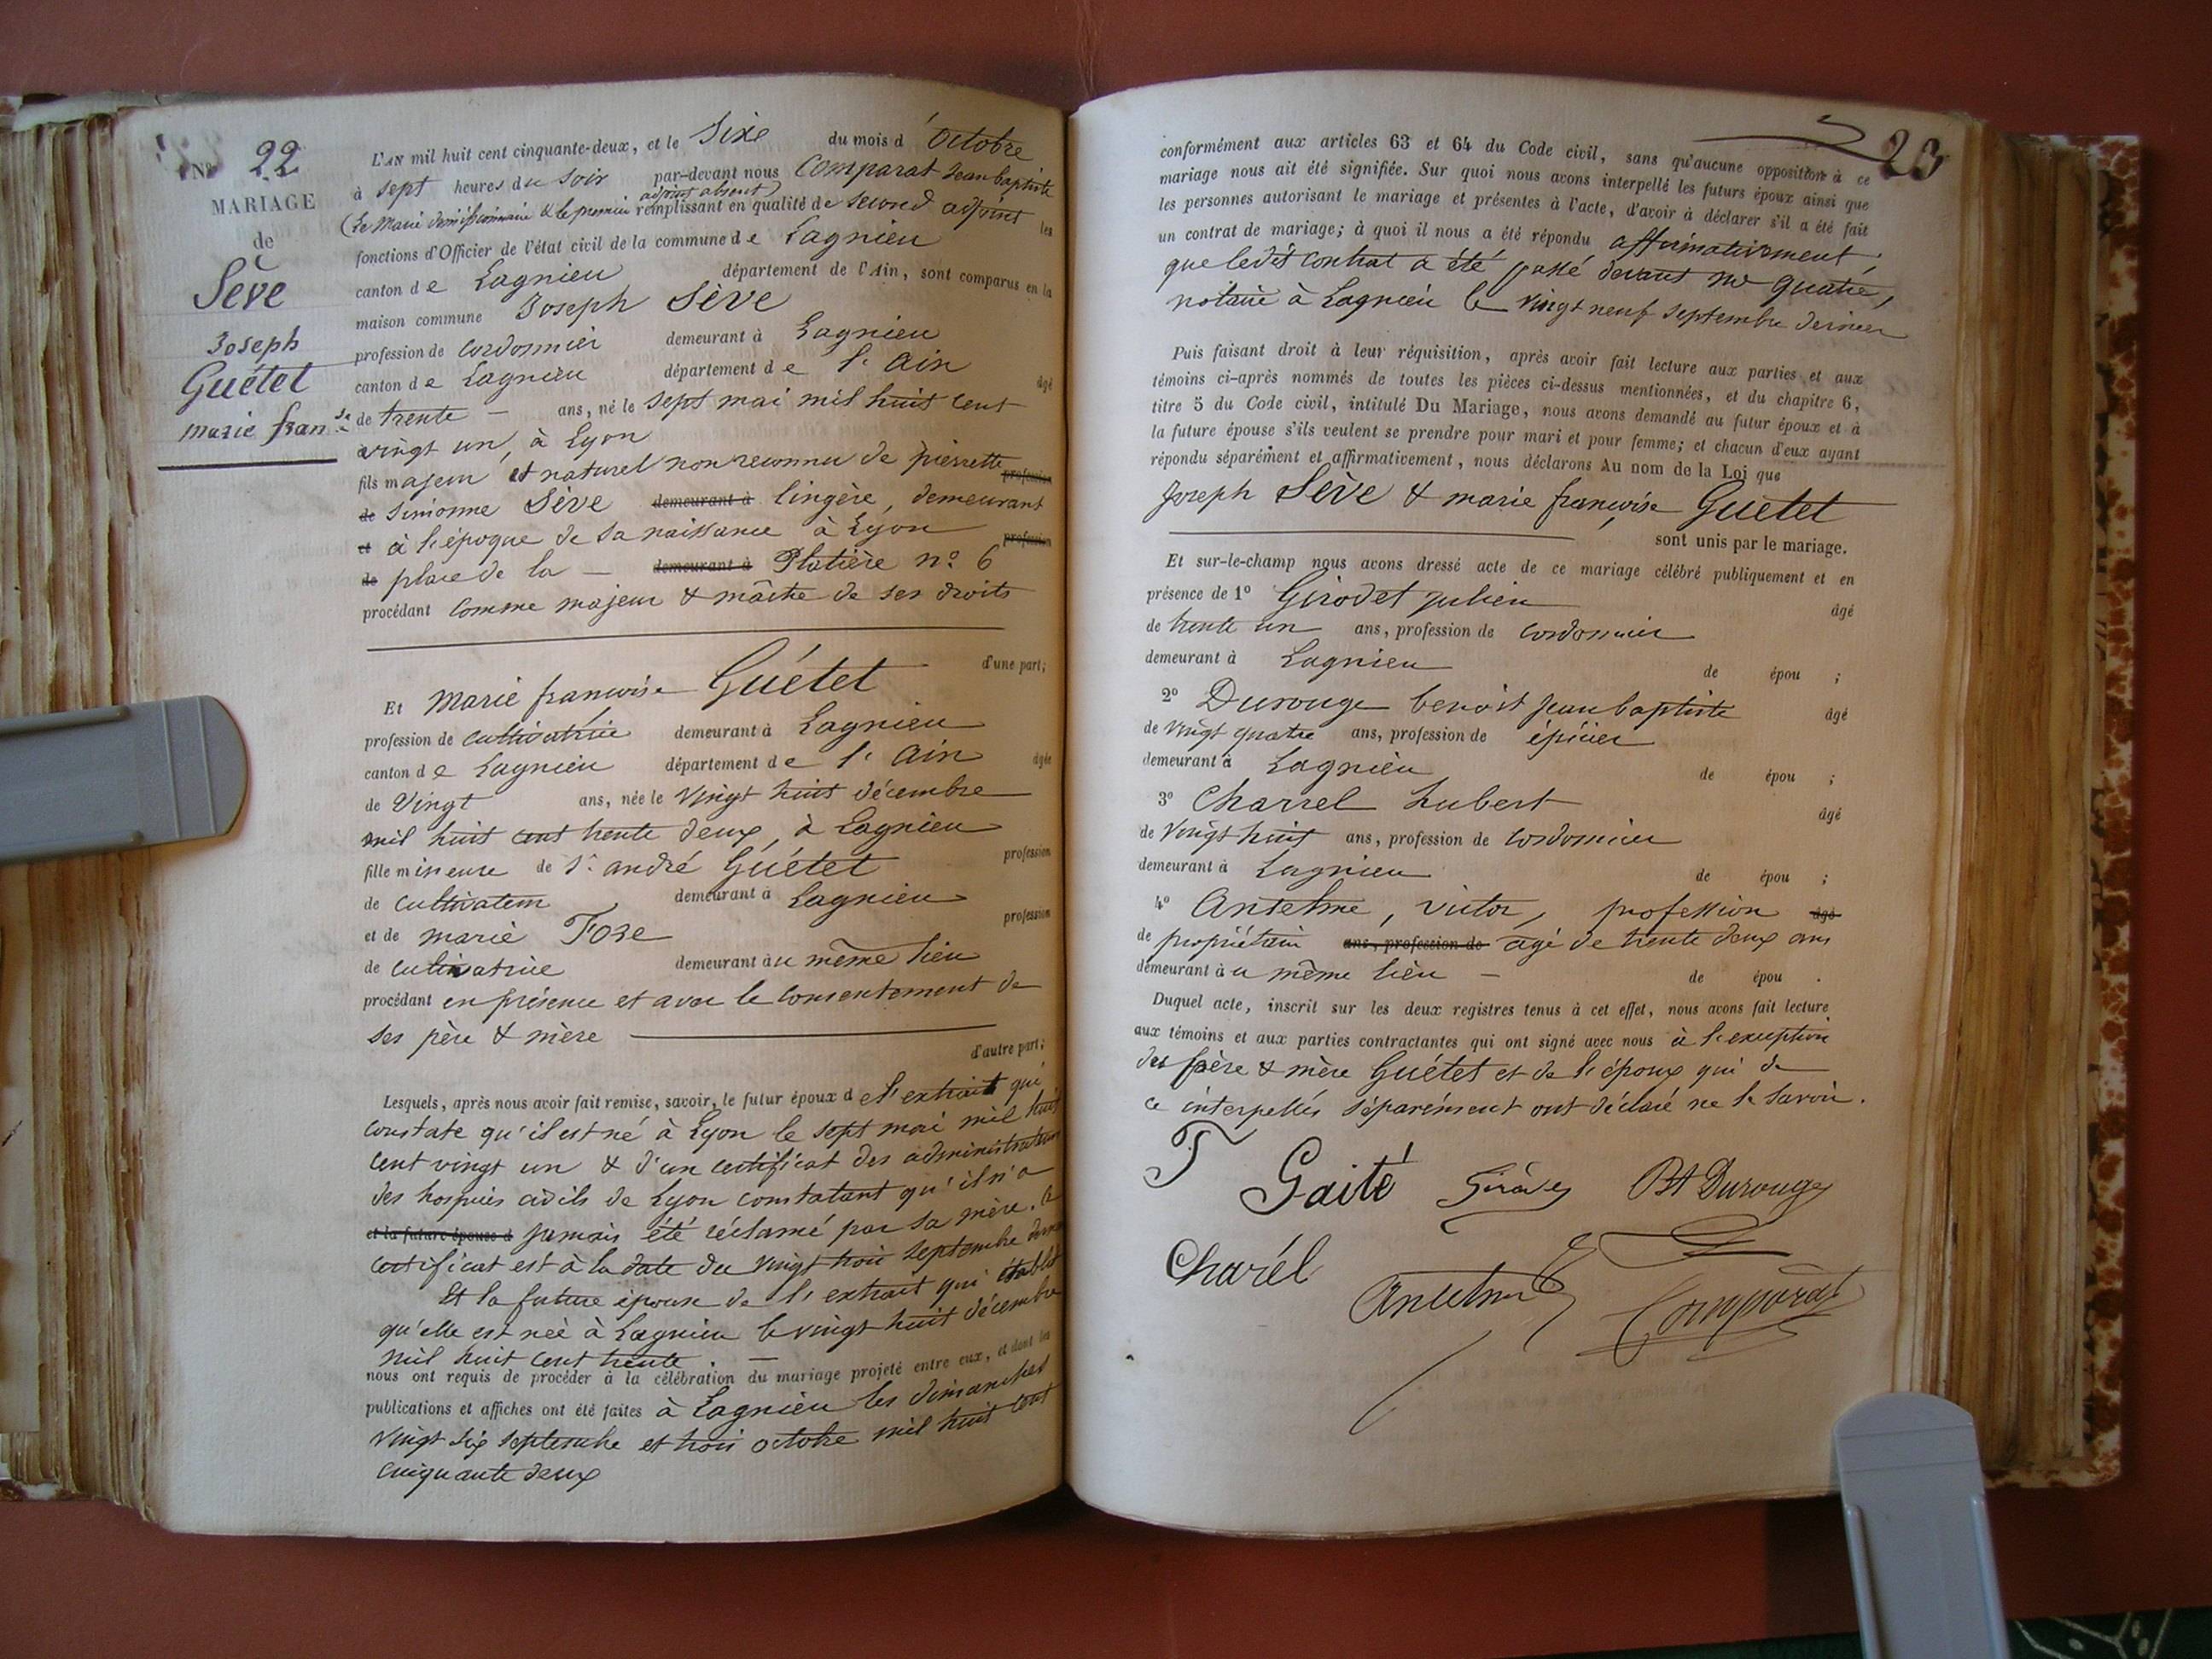 N° 22
MARIAGE
de
Sève
Joseph
Guétet
marie fran.se
L'AN mil huit cent cinquante-deux, et le sixe du mois d'Octobre
à sept heures du soir par-devant nous Comparat Jean baptiste
(le Maire démissionnaire & le premier adjoint absent) remplissant en qualité de second adjoint les
fonctions d'Officier de l'état civil de la commune de Lagnieu
canton de Lagnieu département de l'Ain, sont comparus en la
maison commune Joseph Sève
profession de cordonnier demeurant à Lagnieu
canton de Lagnieu département de l'Ain âgé
de trente — ans, né le sept mai mil huit cent
vingt un, à Lyon
fils majeur et naturel non reconnu de pierrette profession
de simonne Sève demeurant à lingère, demeurant
et à l'époque de sa naissance à Lyon profession
de place de la — demeurant à Platière n° 6
procédant comme majeur & maître de ses droits
d'une part;
Et Marie françoise Guétet
profession de cultivatrice demeurant à Lagnieu
canton de Lagnieu département de l'Ain âgée
de vingt ans, née le vingt huit décembre
mil huit cent trente deux, à Lagnieu
fille mineure de Sr. andré Guétet profession
de cultivateur demeurant à Lagnieu
et de marie Foze profession
de cultivatrice demeurant au même lieu
procédant en présence et avec le consentement de
ses père & mère
d'autre part;
Lesquels, après nous avoir fait remise, savoir, le futur époux de l'extrait qui
constate qu'il est né à Lyon le sept mai mil huit
cent vingt un & d'un certificat des administrateurs
des hospices civils de Lyon constatant qu'il n'a
et la future épouse d jamais été réclamé par sa mère. Ce
certificat est à la date du vingt trois septembre dernier
Et la future épouse de l'extrait qui établit
qu'elle est née à Lagnieu le vingt huit décembre
mil huit cent trente . —
nous ont requis de procéder à la célébration du mariage projeté entre eux, et dont les
publications et affiches ont été faites à Lagnieu les dimanches
vingt six septembre et trois octobre mil huit cent
cinquante deux
23
conformément aux articles 63 et 64 du Code civil, sans qu'aucune opposition à ce
mariage nous ait été signifiée. Sur quoi nous avons interpellé les futurs époux ainsi que
les personnes autorisant le mariage et présentes à l'acte, d'avoir à déclarer s'il a été fait
un contrat de mariage; à quoi il nous a été répondu affirmativement,
que ledit contrat a été passé devant Me Quatre,
notaire à Lagnieu le vingt neuf septembre dernier
Puis faisant droit à leur réquisition, après avoir fait lecture aux parties et aux
témoins ci-après nommés de toutes les pièces ci-dessus mentionnées, et du chapitre 6,
titre 5 du Code civil, intitulé Du Mariage, nous avons demandé au futur époux et à
la future épouse s'ils veulent se prendre pour mari et pour femme; et chacun d'eux ayant
répondu séparément et affirmativement, nous déclarons Au nom de la Loi que
Joseph Sève & marie françoise Guétet
sont unis par le mariage.
Et sur-le-champ nous avons dressé acte de ce mariage célébré publiquement et en
présence de 1° Girodet julien âgé
de trente un ans, profession de cordonnier
demeurant à Lagnieu de épou ;
2° Durouge benoit jean baptiste âgé
de vingt quatre ans, profession de épicier
demeurant à Lagnieu de épou ;
3° Charrel hubert âgé
de vingt huit ans, profession de cordonnier
demeurant à Lagnieu de épou ;
4° Anselme, victor, profession âgé
de propriétaire ans, profession de agé de trente deux ans
demeurant au même lieu — de épou .
Duquel acte, inscrit sur les deux registres tenus à cet effet, nous avons fait lecture
aux témoins et aux parties contractantes qui ont signé avec nous à l'exception
des père & mère Guétet et de l'époux qui de
ce interpellés séparément ont déclaré ne le savoir.
Gaité
Bt Durouge
Charél
Anselme
Comparat